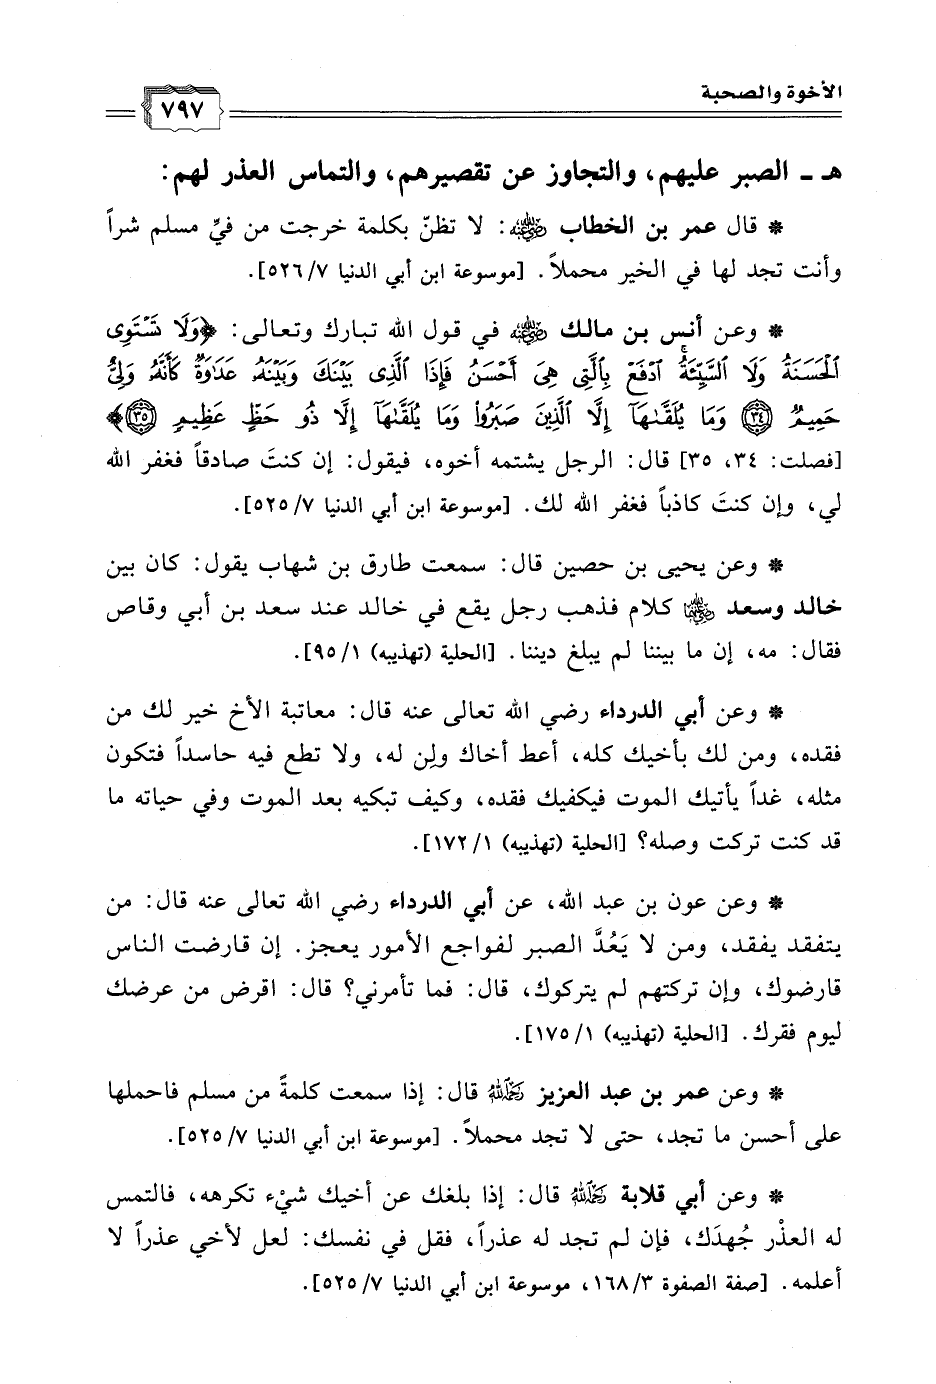 الأخوة والصحبة
٧٩٧
هـ ـ الصبر عليهم، والتجاوز عن تقصيرهم، والتماس العذر لهم:
* قال عمر بن الخطاب رضي الله عنه: لا تظنّ بكلمة خرجت من فيِّ مسلم شراً
وأنت تجد لها في الخير محملاً. [موسوعة ابن أبي الدنيا ٧/ ٥٢٦].
* وعن أنس بن مالك رضي الله عنه في قول الله تبارك وتعالى: ﴿وَلَا تَسْتَوِى
ٱلْحَسَنَةُ وَلَا ٱلسَّيِّئَةُ ۚ ٱدْفَعْ بِٱلَّتِى هِىَ أَحْسَنُ فَإِذَا ٱلَّذِى بَيْنَكَ وَبَيْنَهُۥ عَدَٰوَةٌ كَأَنَّهُۥ وَلِىٌّ
حَمِيمٌ ﴿٣٤﴾ وَمَا يُلَقَّىٰهَآ إِلَّا ٱلَّذِينَ صَبَرُوا۟ وَمَا يُلَقَّىٰهَآ إِلَّا ذُو حَظٍّ عَظِيمٍ ﴿٣٥﴾﴾
[فصلت: ٣٤، ٣٥] قال: الرجل يشتمه أخوه، فيقول: إن كنتَ صادقاً فغفر الله
لي، وإن كنتَ كاذباً فغفر الله لك. [موسوعة ابن أبي الدنيا ٧/ ٥٢٥].
* وعن يحيى بن حصين قال: سمعت طارق بن شهاب يقول: كان بين
خالد وسعد رضي الله عنهما كلام فذهب رجل يقع في خالد عند سعد بن أبي وقاص
فقال: مه، إن ما بيننا لم يبلغ ديننا. [الحلية (تهذيبه) ١/ ٩٥].
* وعن أبي الدرداء رضي الله تعالى عنه قال: معاتبة الأخ خير لك من
فقده، ومن لك بأخيك كله، أعط أخاك ولِن له، ولا تطع فيه حاسداً فتكون
مثله، غداً يأتيك الموت فيكفيك فقده، وكيف تبكيه بعد الموت وفي حياته ما
قد كنت تركت وصله؟ [الحلية (تهذيبه) ١/ ١٧٢].
* وعن عون بن عبد الله، عن أبي الدرداء رضي الله تعالى عنه قال: من
يتفقد يفقد، ومن لا يَعُدَّ الصبر لفواجع الأمور يعجز. إن قارضت الناس
قارضوك، وإن تركتهم لم يتركوك، قال: فما تأمرني؟ قال: اقرض من عرضك
ليوم فقرك. [الحلية (تهذيبه) ١/ ١٧٥].
* وعن عمر بن عبد العزيز رحمه الله قال: إذا سمعت كلمةً من مسلم فاحملها
على أحسن ما تجد، حتى لا تجد محملاً. [موسوعة ابن أبي الدنيا ٧/ ٥٢٥].
* وعن أبي قلابة رحمه الله قال: إذا بلغك عن أخيك شيْء تكرهه، فالتمس
له العذْر جُهدَك، فإن لم تجد له عذراً، فقل في نفسك: لعل لأخي عذراً لا
أعلمه. [صفة الصفوة ٣/ ١٦٨، موسوعة ابن أبي الدنيا ٧/ ٥٢٥].